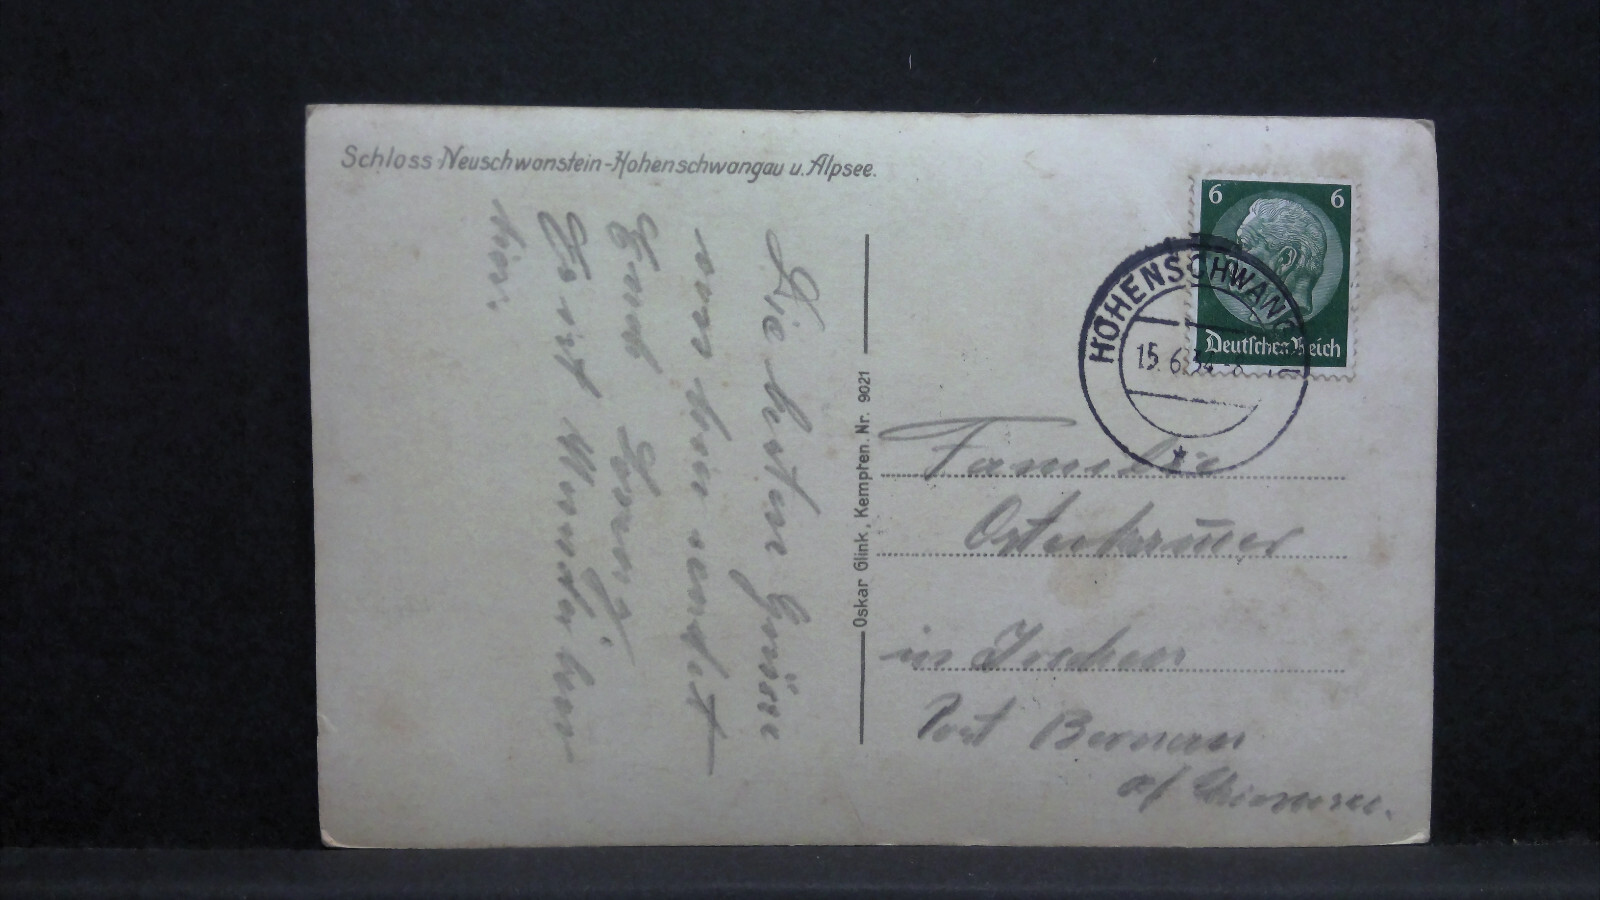 Schloss Neuschwanstein-Hohenschwangau u. Alpsee.
6 6
Deutsches Reich
HOHENSCHWANG
15.6.34-8
Die besten Grüsse
von hier sendet
Euch
Post
hier.
Oskar Glink, Kempten. Nr. 9021
Familie
in
Post Bernau
a/ Chiemsee.